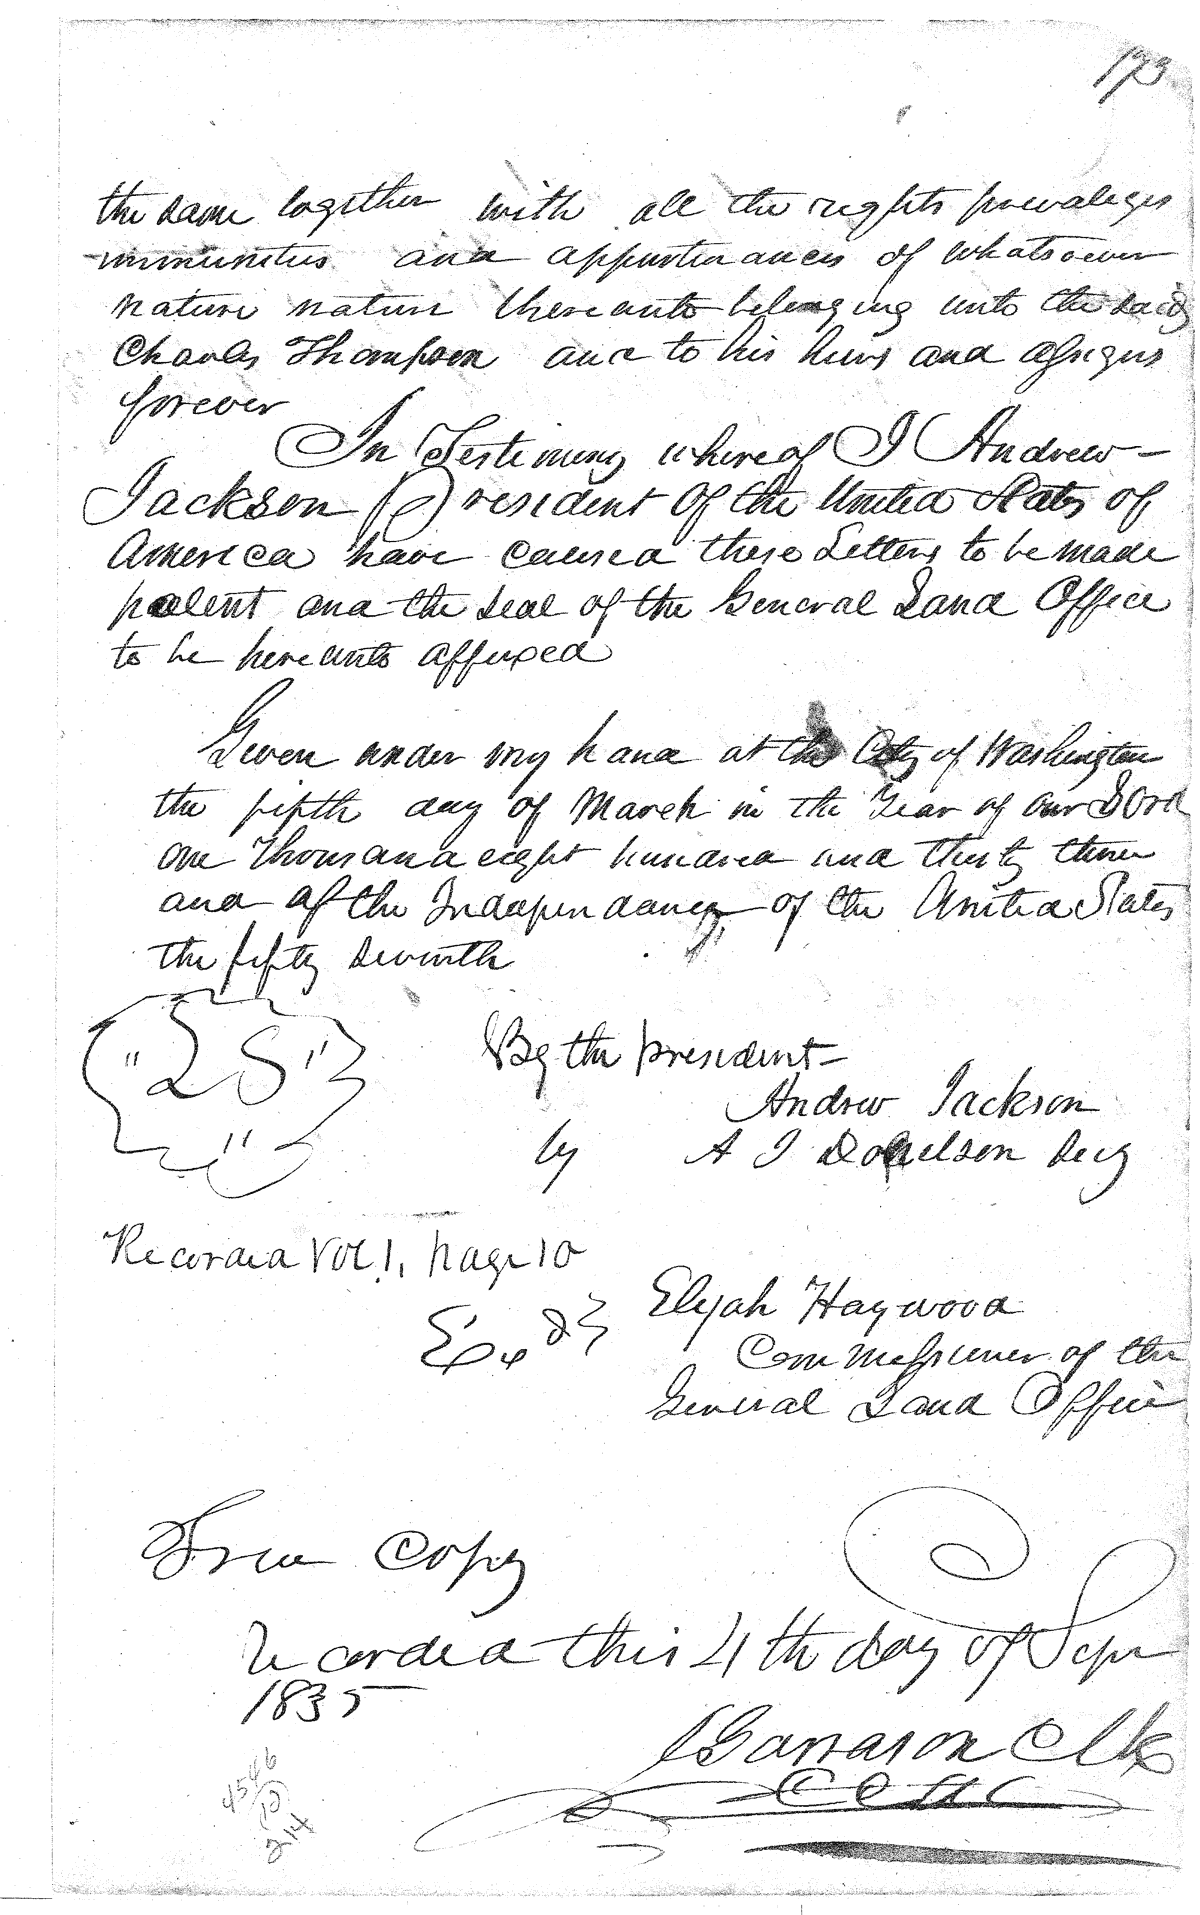 173
the same together with all the rights privaleges
immunities and appurtenances of whatsoever
nature nature thereunto belonging unto the said
Charles Thompson and to his heirs and assigns
forever
In Testimony whereof I Andrew
Jackson President of the United States of
America have caused these Letters to be made
patent and the seal of the General Land Office
to be hereunto affixed
Given under my hand at the City of Washington
the fifth day of March in the Year of our Lord
one Thousand eight hundred and thirty three
and of the Indapendancy of the United States
the fifty seventh
"LS"
By the president
Andrew Jackson
by A J Donelson Secy
Recorded Vol 1, page 10
Exd
Elijah Haywood
Commissioner of the
General Land Office
True Copy
Recorded this 4th day of Sepr
1835
Garrason Clk
4546
10
214